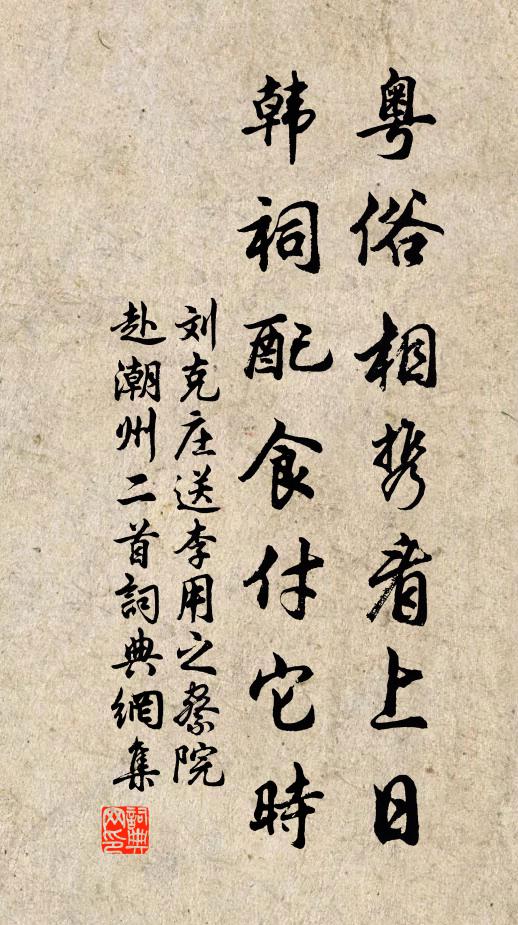 粤俗相携看上日
韩祠配食付它時
刘克庄送李用之察院
赴潮州二首詞典網集
詞典
网印